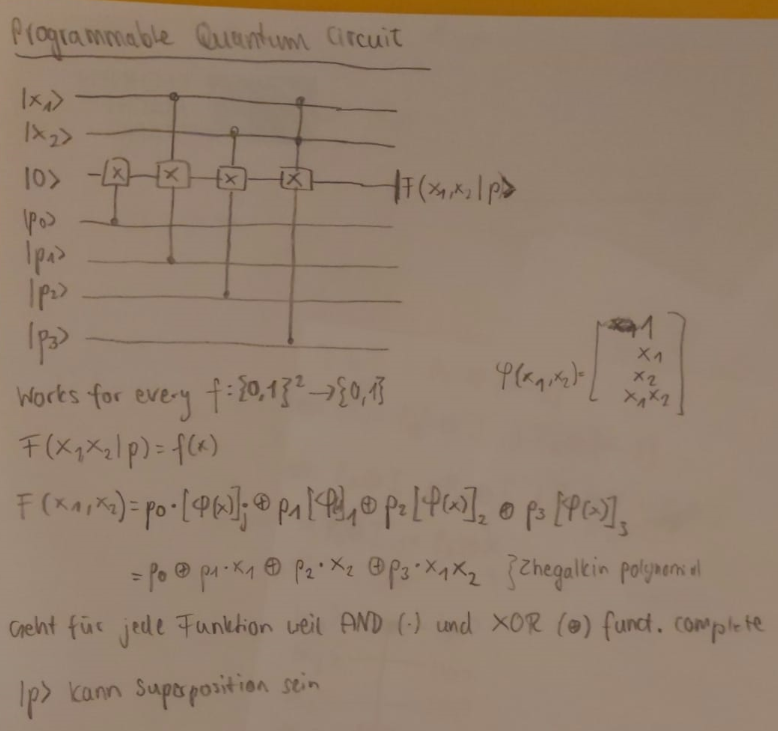 Programmable Quantum Circuit
|x₁⟩
|x₂⟩
|0⟩ X X X X |F(x₁,x₂|p)⟩
|p₀⟩
|p₁⟩
|p₂⟩
|p₃⟩
φ(x₁,x₂)= [1
x₁
x₂
x₁x₂]
Works for every f:{0,1}² → {0,1}
F(x₁x₂|p)=f(x)
F(x₁,x₂)=p₀·[φ(x)] ⊕ p₁[φ]₁ ⊕ p₂[φ(x)]₂ ⊕ p₃[φ(x)]₃
= p₀ ⊕ p₁·x₁ ⊕ p₂·x₂ ⊕ p₃·x₁x₂ }Zhegalkin polynomial
Geht für jede Funktion weil AND (·) und XOR (⊕) funct. complete
|p⟩ kann Superposition sein